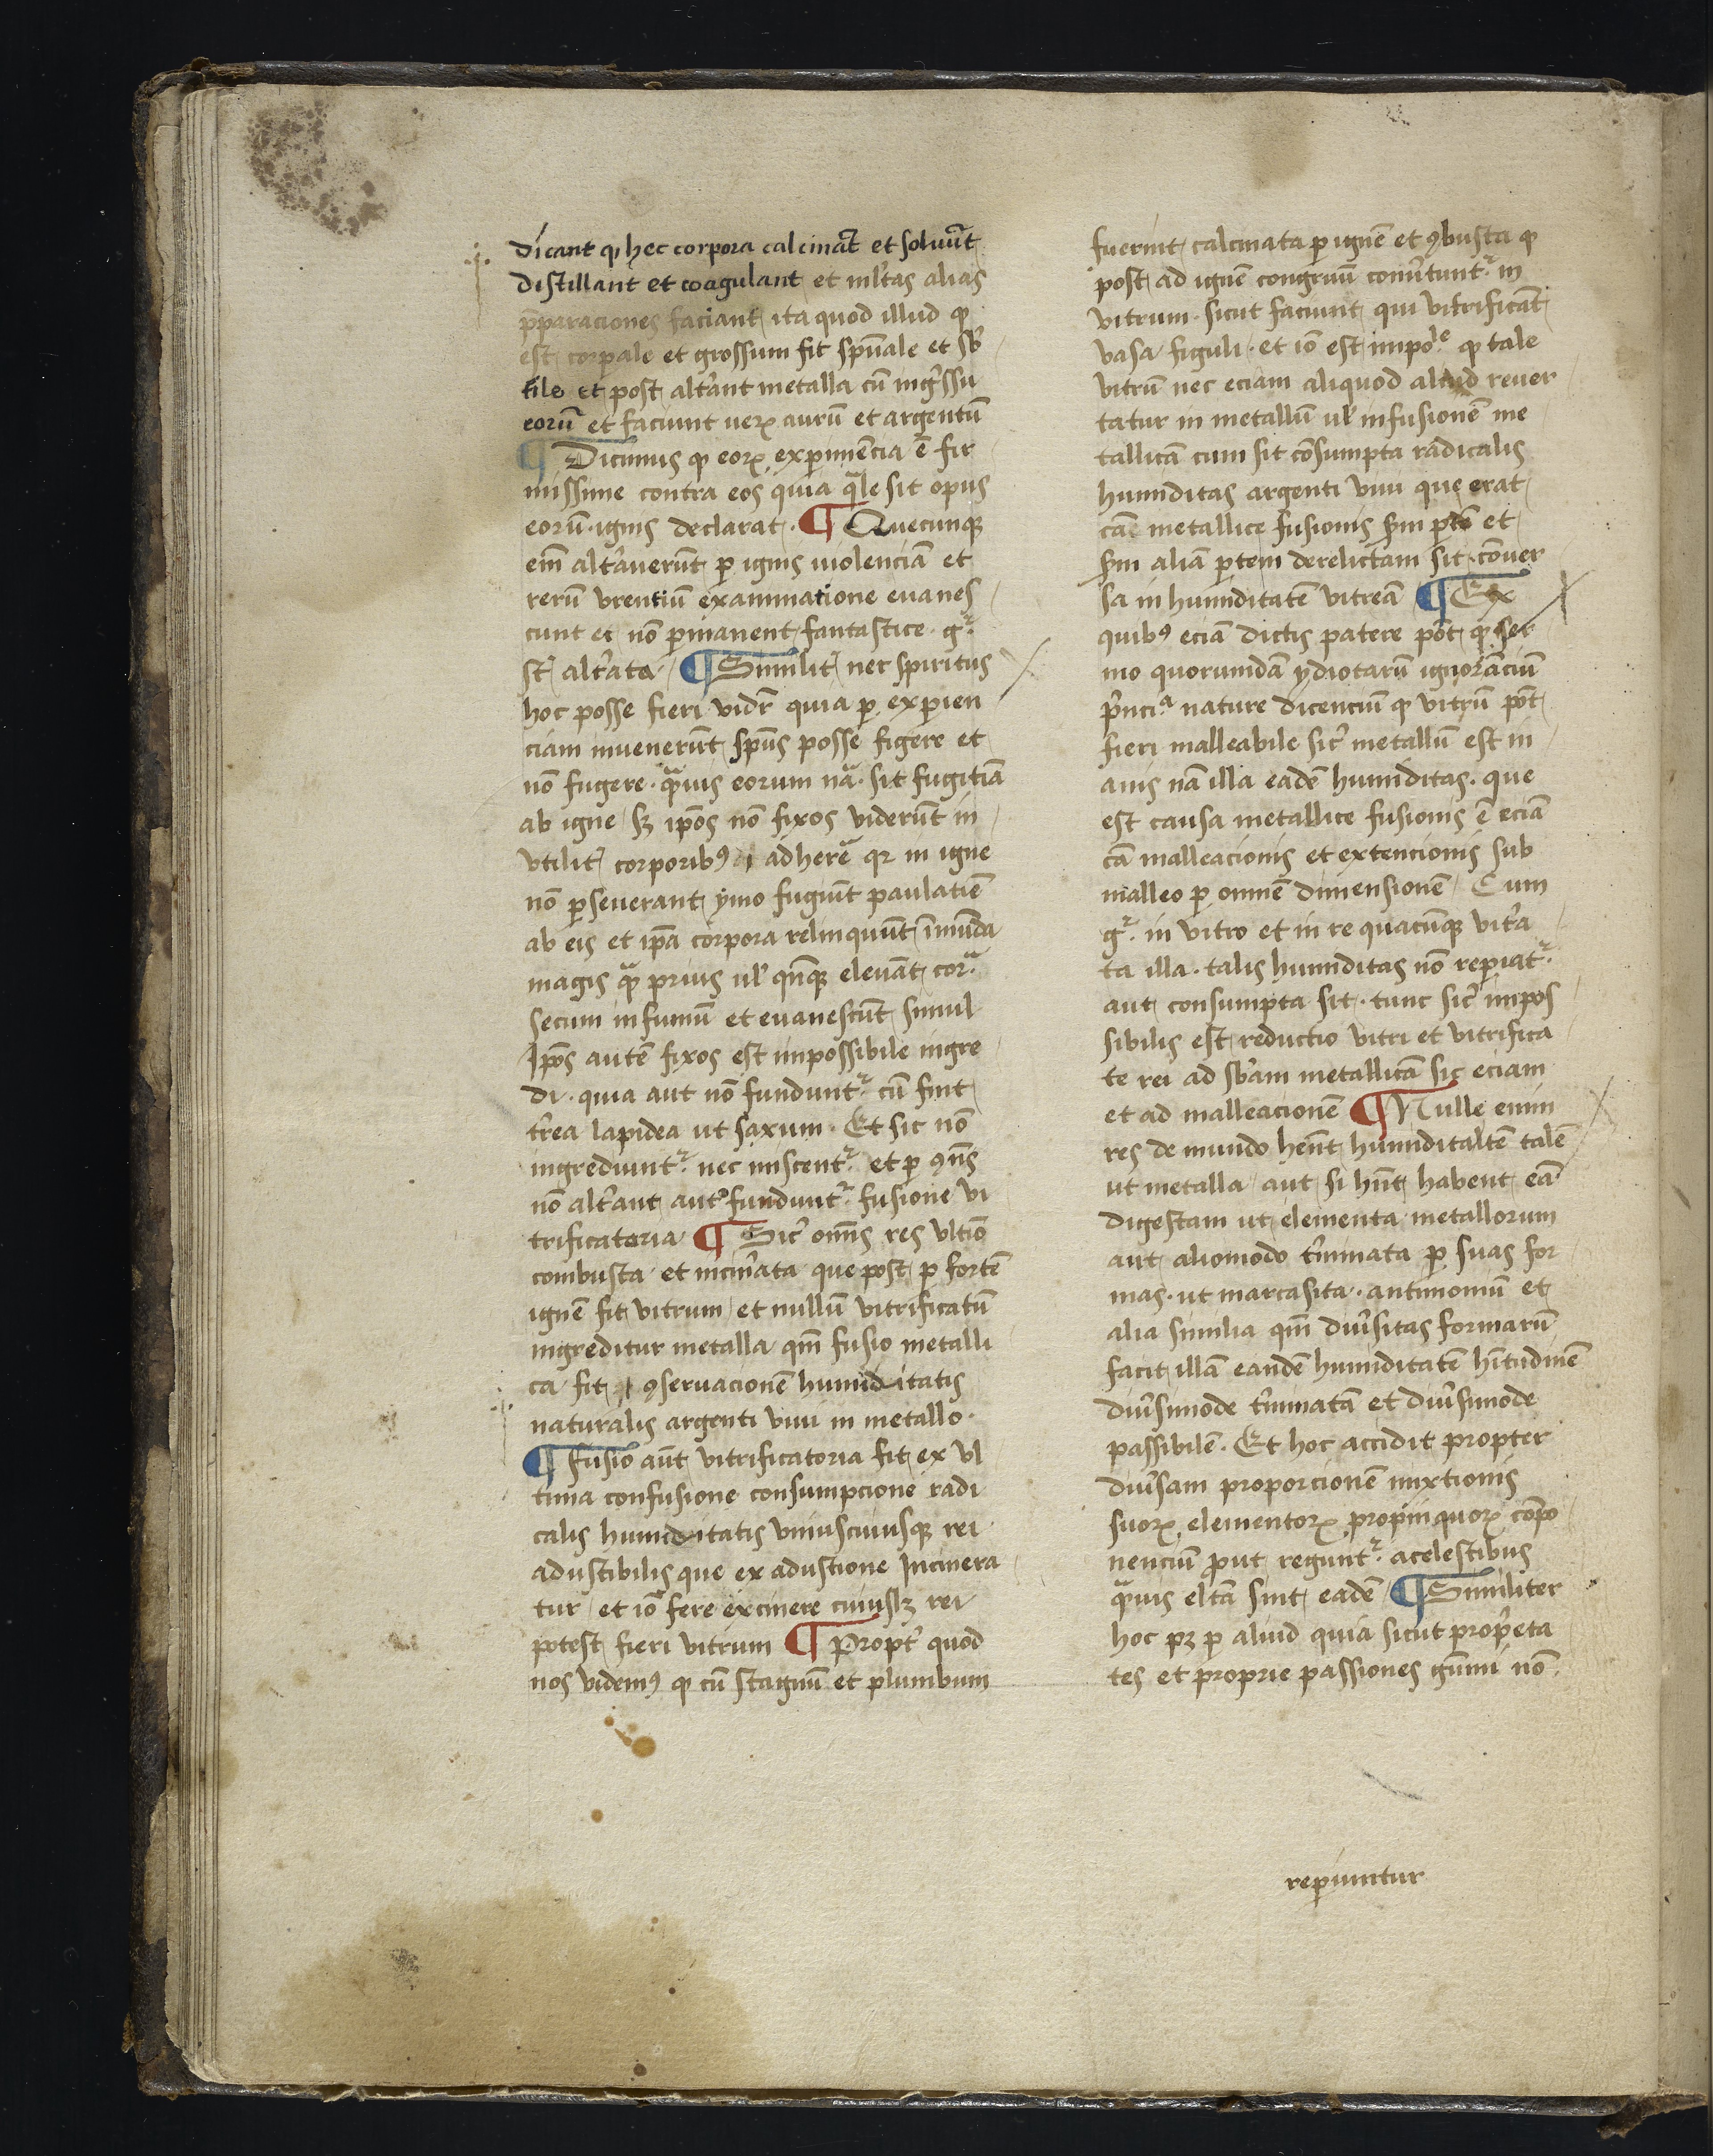 dicant ꝙ hec corpora calcināt et soluūt
distillant et coagulant et ml̄tas alias
p̄paraciones faciant ita quod illud ꝙ
est corporale et grossum fit spūale et sb̄
tile et post alt̄ant metalla cū ingr̄ssu
eorū et faciunt uerꝝ aurū et argentū
¶ Dicimus ꝙ eorꝝ experimēcia ē fir
missime contra eos quia q̄le sit opus
eorū ignis declarat. ¶ Quecunqꝫ
em̄ alt̄auerūt ꝑ ignis uiolenciā et
rerū vrentiū examinatione euanes
cunt et nō ꝑmanent fantastice gͬ
st̄ alt̄ata ¶ Similit̄ nec spiritus
hoc posse fieri vidr̄ quia ꝑ experien
ciam inuenerūt spūs posse figere et
nō fugere. q̄uis eorum nā. sit fugitiā
ab igne sꝫ ip̄os nō fixos viderūt in
vtilit̄ corporibꝰ adherē qꝛ in igne
nō ꝑseuerant ymo fugiūt paulatiē
ab eis et ip̄a corpora relinquūt īmūda
magis q̄ prius ul̄ qn̄qꝫ eleuāt corᷓ
secum in fumū et euanescūt simul
Ip̄os autē fixos est impossibile ingre
di. quia aut nō funduntͬ cū sint
tr̄ea lapidea ut saxum. Et sic nō
ingrediuntͬ nec miscentͬ et ꝑ ꝯn̄s
nō alt̄ant aut fundutͬ fusione vi
trificatoria ¶ Sic̄ omn̄s res vltiō
combusta et incin̄ata que post ꝑ fortē
ignē fit vitrum et nullū vitrificatū
ingreditur metalla qm̄ fusio metalli
ca fit ꝯseruacionē humiditatis
naturalis argenti viui in metallo.
¶ Fusio aūt vitrificatoria fit ex vl
tima confusione consumpcione radi
calis humiditatis vniuscuiusqꝫ rei
adustibilis que ex adustione Incinera
tur et iō fere excinere cuiuslꝫ rei
potest fieri vitrum ¶ Propt̄ quod
nos videmꝰ ꝙ cū stagnū et plumbum
fuerint calcinata ꝑ ignē et ꝯbusta ꝙ
post ad ignē congruū conūtuntͬ in
vitrum. sicut faciunt qui vitrificāt
vasa figuli. et iō est impoˡᵉ ꝙ tale
vitrū nec eciam aliquod aliud reuer
tatur in metallū ul̄ infusionē me
tallicā cum sit cōsumpta radicalis
humiditas argenti viui que erat
cāe metallice fusionis sm̄ ꝑtē et
sm̄ aliā ꝑtem derelictam sit cōuer
sa in humiditatē vitreā ¶ Ex
quibꝰ eciā dictis patere pōt ꝙ ser
mo quorumdā ydiotarū ignorāciū
pr̄nciᵃ nature dicenciū ꝙ vitrū pōt
fieri malleabile sic̄ metallū est in
anis nā illa eadē humiditas. que
est causa metallice fusionis ē eciā
cā malleacionis et extencionis sub
malleo ꝑ omnē dimensionē Cum
gͬ in vitro et in re quacūqꝫ vit̄a
ta illa. talis humiditas nō repiatͬ
aut consumpta sit. tunc sic̄ impos
sibilis est reductio vitri et vitrifica
te rei ad sb̄am metallicā sic eciam
et ad malleacionē ¶ Nulle enim
res de mundo hen̄t humiditatē talē
ut metalla aut si hn̄t habent eā
digestam ut elementa metallorum
aut aliomodo t̄minata ꝑ suas for
mas. ut marcasita. antimoniū et
alia similia qm̄ diūsitas formarū
facit illā eandē humiditatē hītudinē
diūsimode t̄minatā et diūsimode
passibilē. Et hoc accidit propter
diūsam proporcionē mixtionis
suorꝝ elementorꝝ propinquorꝝ cōpo
nenciū ꝓut reguntͬ acelestibus
q̄uis eltā sint eadē ¶ Similiter
hoc pꝫ ꝑ aliud quia sicut prop̄eta
tes et proprie passiones gūmi nō
repiuntur